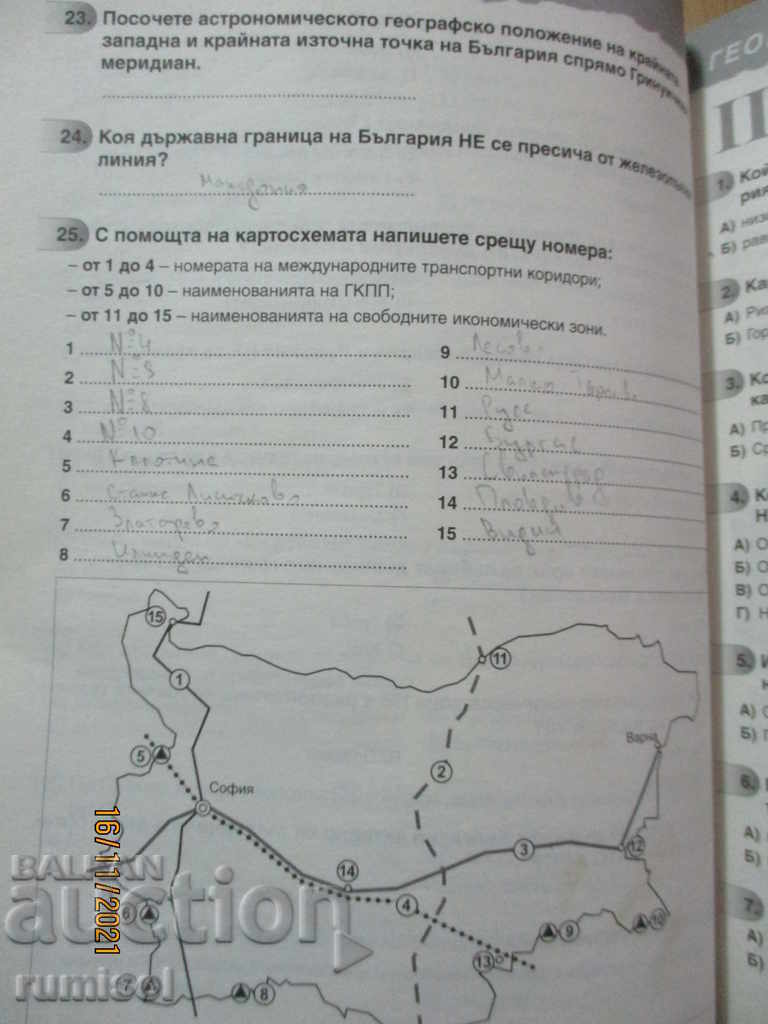 23. Посочете астрономическото географско положение на крайната
западна и крайната източна точка на България спрямо Гринуичкия
меридиан.
24. Коя държавна граница на България НЕ се пресича от железопътна
линия?
Македония
25. С помощта на картосхемата напишете срещу номера:
– от 1 до 4 – номерата на международните транспортни коридори;
– от 5 до 10 – наименованията на ГКПП;
– от 11 до 15 – наименованията на свободните икономически зони.
1 №4
2 №9
3 №8
4 №10
5 Калотина
6 Станке Лисичково
7 Златарево
8 Илинден
9 Лесово
10 Малко Търново
11 Русе
12 Бургас
13 Свиленград
14 Пловдив
15 Видин
15
11
1
Варна
5
2
София
3
12
14
4
6
9
10
13
7
8
BALKAN
auction
rumisol
16/11/2021
ГЕО
П
1. Кой
рия
А) низ
Б) рав
2. Ка
А)
Б) Гор
3. Ко
ка
А) Пр
Б) Ср
4. Ко
Н
А) О
Б) О
В) О
Г) Н
5. И
н
А)
Б)
6.
А)
Б)
7.
А)
Б)